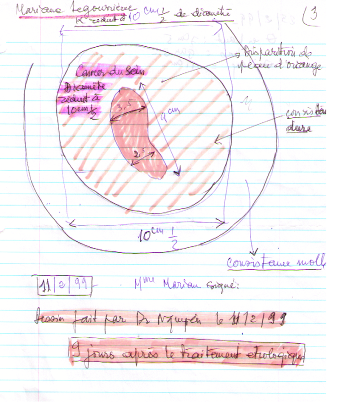 Mariane
(3
K réduit à 10 cm 1/2 de diamètre
Disparition de
peau d'orange
Cancer du Sein
Diamètre
réduit à
10 cm 1/2
3,5
4 cm
2
consistance
dure
10 cm 1/2
consistance moll
11/2/99
Mme
Dessin fait par Dr Nguyen le 11/2/99
9 jours après le traitement étiologique